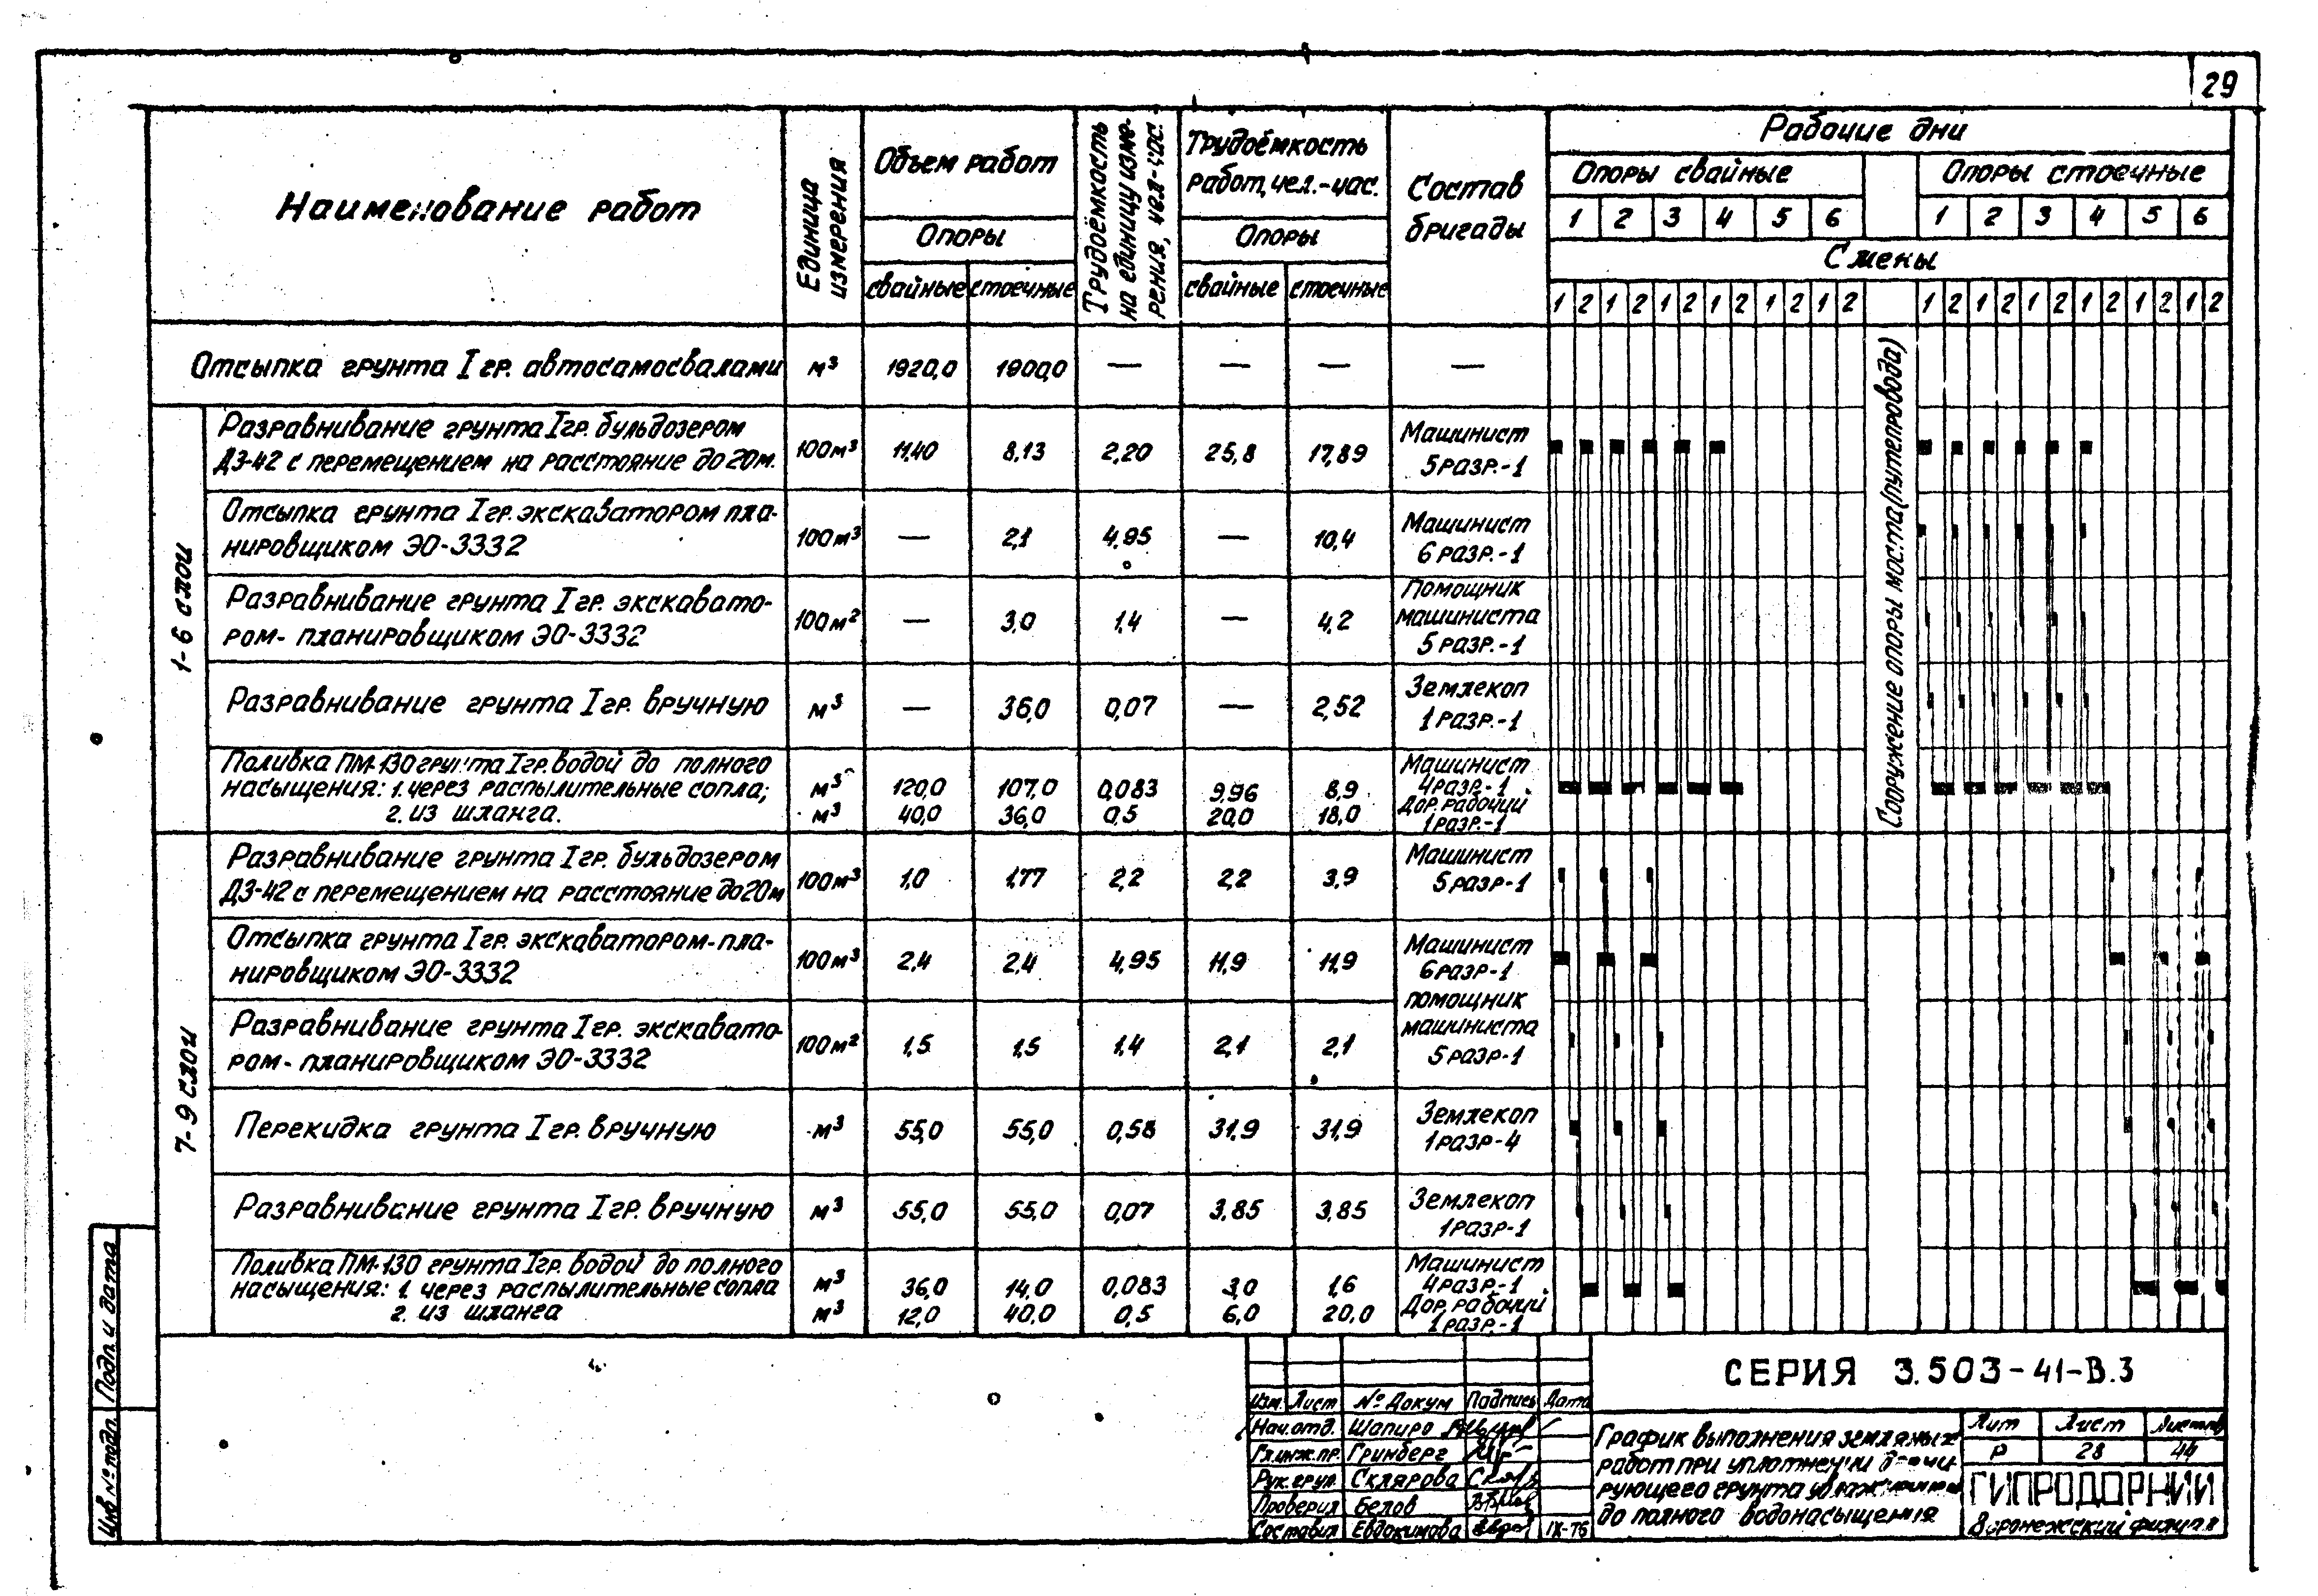 29
Наименование работ
Единица измерения
Объем работ
Опоры
свайные стоечные
Трудоёмкость на единицу измерения, чел-час.
Трудоёмкость работ, чел.-час.
Опоры
свайные стоечные
Состав бригады
Рабочие дни
Опоры свайные Опоры стоечные
1 2 3 4 5 6 1 2 3 4 5 6
Смены
1 2 1 2 1 2 1 2 1 2 1 2 1 2 1 2 1 2 1 2 1 2 1 2
Сооружение опоры моста (путепровода)
Отсыпка грунта I гр. автосамосвалами м³ 1920,0 1900,0 — — — —
1-6 слои
Разравнивание грунта I гр. бульдозером
ДЗ-42 с перемещением на расстояние до 20м. 100м³ 11,40 8,13 2,20 25,8 17,89 Машинист 5 разр.-1
Отсыпка грунта I гр. экскаватором пла-
нировщиком ЭО-3332 100м³ — 2,1 4,95 — 10,4 Машинист 6 разр.-1
Разравнивание грунта I гр. экскавато-
ром-планировщиком ЭО-3332 100м² — 3,0 1,4 — 4,2 Помощник машиниста 5 разр.-1
Разравнивание грунта I гр. вручную м³ — 36,0 0,07 — 2,52 Землекоп 1 разр.-1
Поливка ПМ-130 грунта I гр. водой до полного
насыщения: 1. через распылительные сопла; м³ 120,0 107,0 0,083 9,96 8,9 Машинист 4 разр.-1
2. из шланга. м³ 40,0 36,0 0,5 20,0 18,0 Дор. рабочий 1 разр.-1
7-9 слои
Разравнивание грунта I гр. бульдозером
ДЗ-42 с перемещением на расстояние до 20м 100м³ 1,0 1,77 2,2 2,2 3,9 Машинист 5 разр-1
Отсыпка грунта I гр. экскаватором-пла-
нировщиком ЭО-3332 100м³ 2,4 2,4 4,95 11,9 11,9 Машинист 6 разр-1
Разравнивание грунта I гр. экскавато-
ром-планировщиком ЭО-3332 100м² 1,5 1,5 1,4 2,1 2,1 помощник машиниста 5 разр-1
Перекидка грунта I гр. вручную м³ 55,0 55,0 0,58 31,9 31,9 Землекоп 1 разр-4
Разравнивание грунта I гр. вручную м³ 55,0 55,0 0,07 3,85 3,85 Землекоп 1 разр-1
Поливка ПМ-130 грунта I гр. водой до полного
насыщения: 1. через распылительные сопла м³ 36,0 14,0 0,083 3,0 1,6 Машинист 4 разр-1
2. из шланга м³ 12,0 40,0 0,5 6,0 20,0 Дор. рабочий 1 разр.-1
Подп. и дата
Инв № подл.
Изм. Лист № Докум Подпись Дата
Нач. отд. Шапиро
Гл.инж.пр. Гринберг
Рук. груп. Склярова
Проверил Белов
Составил Евдокимова IX-76
СЕРИЯ 3.503-41-В.3
График выполнения земляных
работ при уплотнении дрени-
рующего грунта увлажнением
до полного водонасыщения
Лит Лист Листов
Р 28 44
ГИПРОДОРНИИ
Воронежский филиал